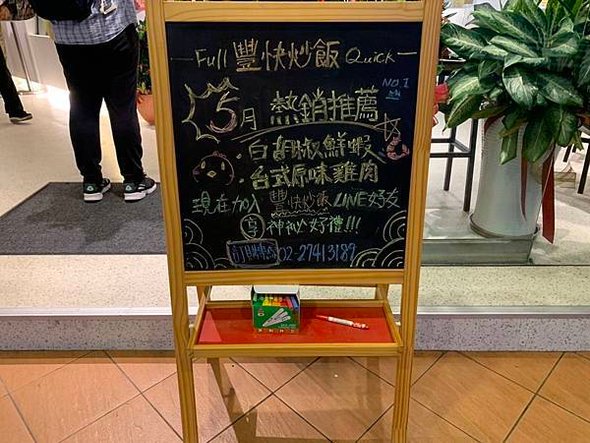 Full 豐快炒飯 Quick
NO.1
5月 熱銷推薦
白胡椒鮮蝦
台式原味雞肉
現在加入豐快炒飯LINE好友
享神秘好禮!!!
訂購專線 02-27413189